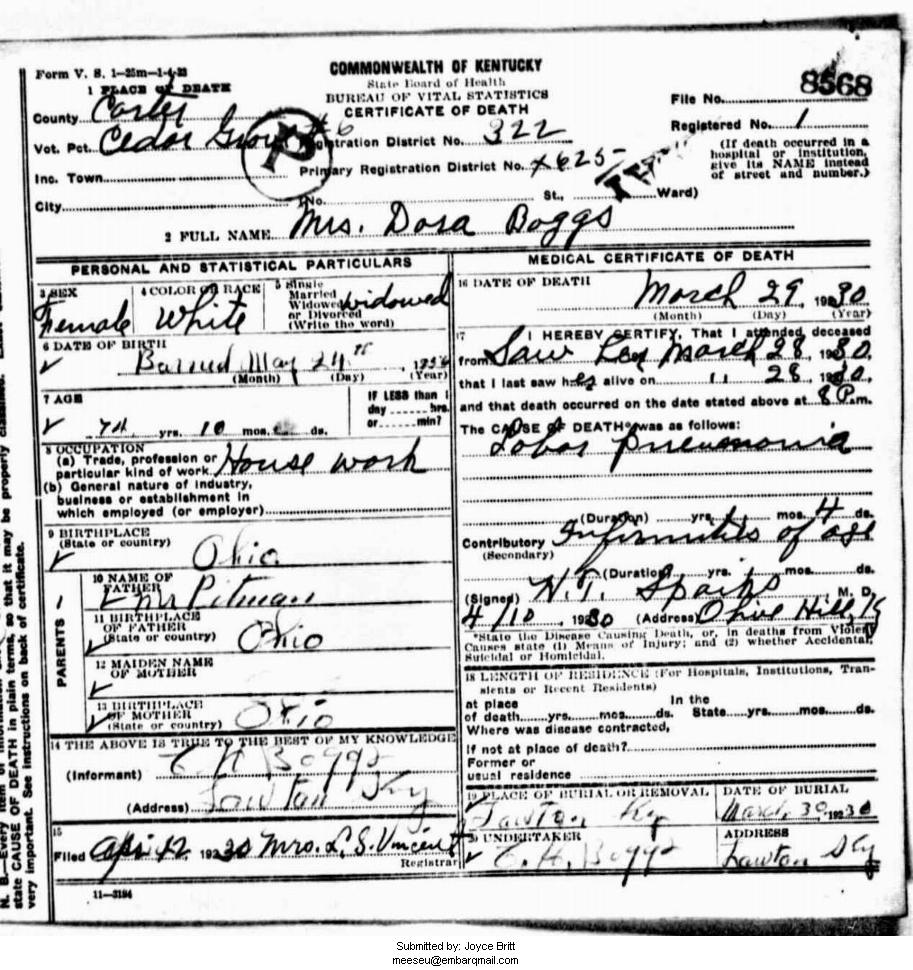 Form V. S. 1—25m—1-4-23
COMMONWEALTH OF KENTUCKY
State Board of Health
BUREAU OF VITAL STATISTICS
CERTIFICATE OF DEATH
8568
File No.
Registered No. 1
(If death occurred in a hospital or institution, give its NAME instead of street and number.)
1 PLACE OF DEATH
County Carter
Vot. Pct. Cedar Grove #6 Registration District No. 322
Inc. Town Primary Registration District No. 7625
City No. St., Ward)
2 FULL NAME Mrs. Dora Boggs
PERSONAL AND STATISTICAL PARTICULARS
3 SEX Female
4 COLOR OR RACE White
5 Single Married Widowed or Divorced (Write the word) widowed
6 DATE OF BIRTH
Borned May 24th, 1856
(Month) (Day) (Year)
7 AGE
74 yrs. 10 mos. ds.
IF LESS than 1 day hrs. or min?
8 OCCUPATION
(a) Trade, profession or particular kind of work House work
(b) General nature of industry, business or establishment in which employed (or employer)
9 BIRTHPLACE
(State or country) Ohio
PARENTS
10 NAME OF FATHER Mr Pitman
11 BIRTHPLACE OF FATHER
(State or country) Ohio
12 MAIDEN NAME OF MOTHER
13 BIRTHPLACE OF MOTHER
(State or country) Ohio
14 THE ABOVE IS TRUE TO THE BEST OF MY KNOWLEDGE
(Informant) C H Boggs
(Address) Lawton Ky
15
Filed Apr 12 1930 Mrs. L. S. Vincent
Registrar
11—3194
MEDICAL CERTIFICATE OF DEATH
16 DATE OF DEATH
March 29 1930
(Month) (Day) (Year)
17 I HEREBY CERTIFY, That I attended deceased
from Saw her March 28, 1930,
that I last saw her alive on 11 28 1930,
and that death occurred on the date stated above at 8 P.m.
The CAUSE OF DEATH* was as follows:
Lobar pneumonia
(Duration) yrs. mos. 4 ds.
Contributory Infirmities of age
(Secondary)
(Duration) yrs. mos. ds.
(Signed) N. T. M. D.
4/10, 1930 (Address) Olive Hill, Ky
*State the Disease Causing Death, or, in deaths from Violent Causes state (1) Means of Injury; and (2) whether Accidental, Suicidal or Homicidal.
18 LENGTH OF RESIDENCE (For Hospitals, Institutions, Transients or Recent Residents)
At place of death yrs. mos. ds. In the State yrs. mos. ds.
Where was disease contracted,
If not at place of death?
Former or usual residence
19 PLACE OF BURIAL OR REMOVAL
Lawton Ky
DATE OF BURIAL
March 30 1930
20 UNDERTAKER
C. H. Boggs
ADDRESS
Lawton Ky
state CAUSE OF DEATH in plain terms, so that it may be properly classified.
very important. See instructions on back of certificate.
Submitted by: Joyce Britt
meeseu@embarqmail.com